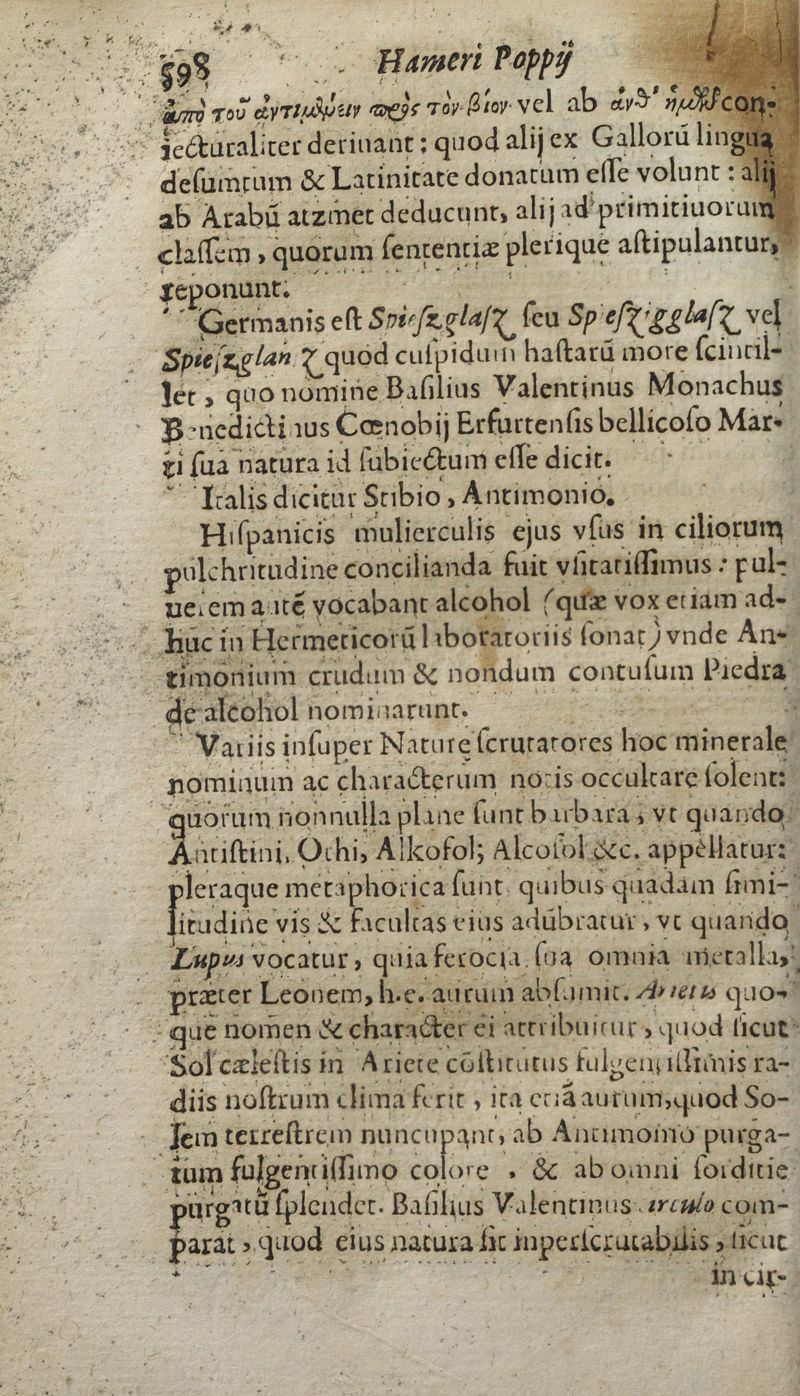 598 Hameri Poppij
ἀπὸ τοῦ
τὸν βίον vel ab con-
iecturaliter deriuant; quod alij ex Gallorũ lingua
deſumtum & Latinitate donatum eſſe volunt: alij
ab Arabũ atzmet deducunt, alij ad primitiuorum
claſſem, quorum ſententiæ plerique aſtipulantur,
reponunt.
Germanis eſt ſeu vel
quod cuſpidum haſtarũ more ſcintil-
let, quo nomine Baſilius Valentinus Monachus
Benedictinus Cœnobij Erfurtenſis bellicoſo Mar-
ti ſua natura id ſubiectum eſſe dicit.
Italis dicitur Stibio, Antimonio.
Hiſpanicis mulierculis ejus vſus in ciliorum
pulchritudine concilianda fuit vſitatiſſimus: pul-
uerem autẽ vocabant alcohol (quæ vox etiam ad-
huc in Hermeticorũ laboratoriis ſonat) vnde An-
timonium crudum & nondum contuſum Piedra
de alcohol nominarunt.
Variis inſuper Naturę ſcrutatores hoc minerale
nominum ac characterum notis occultare ſolent:
quorum nonnulla plane ſunt barbara, vt quando
Antiſtini, Othi, Alkofol; Alcofol &c. appellatur:
pleraque metaphorica ſunt quibus quadam ſimi-
litudine vis & facultas eius adũbratur, vt quando
Lupus vocatur, quia ferocia ſua omnia metalla,
præter Leonem, h.e. aurum abſumit. Arietis quo-
que nomen & character ei attribuitur, quod ſicut
Sol cæleſtis in Ariete cõſtitutus fulgentiſſimis ra-
diis noſtrum clima ferit, ita etiã aurum, quod So-
lem terreſtrem nuncupant, ab Antimonio purga-
tum fulgentiſſimo colore . & ab omni ſorditie
purgatũ ſplendet. Baſilius Valentinus circulo com-
parat, quod eius natura ſit inperſcrutabilis, ſicut
in cir-